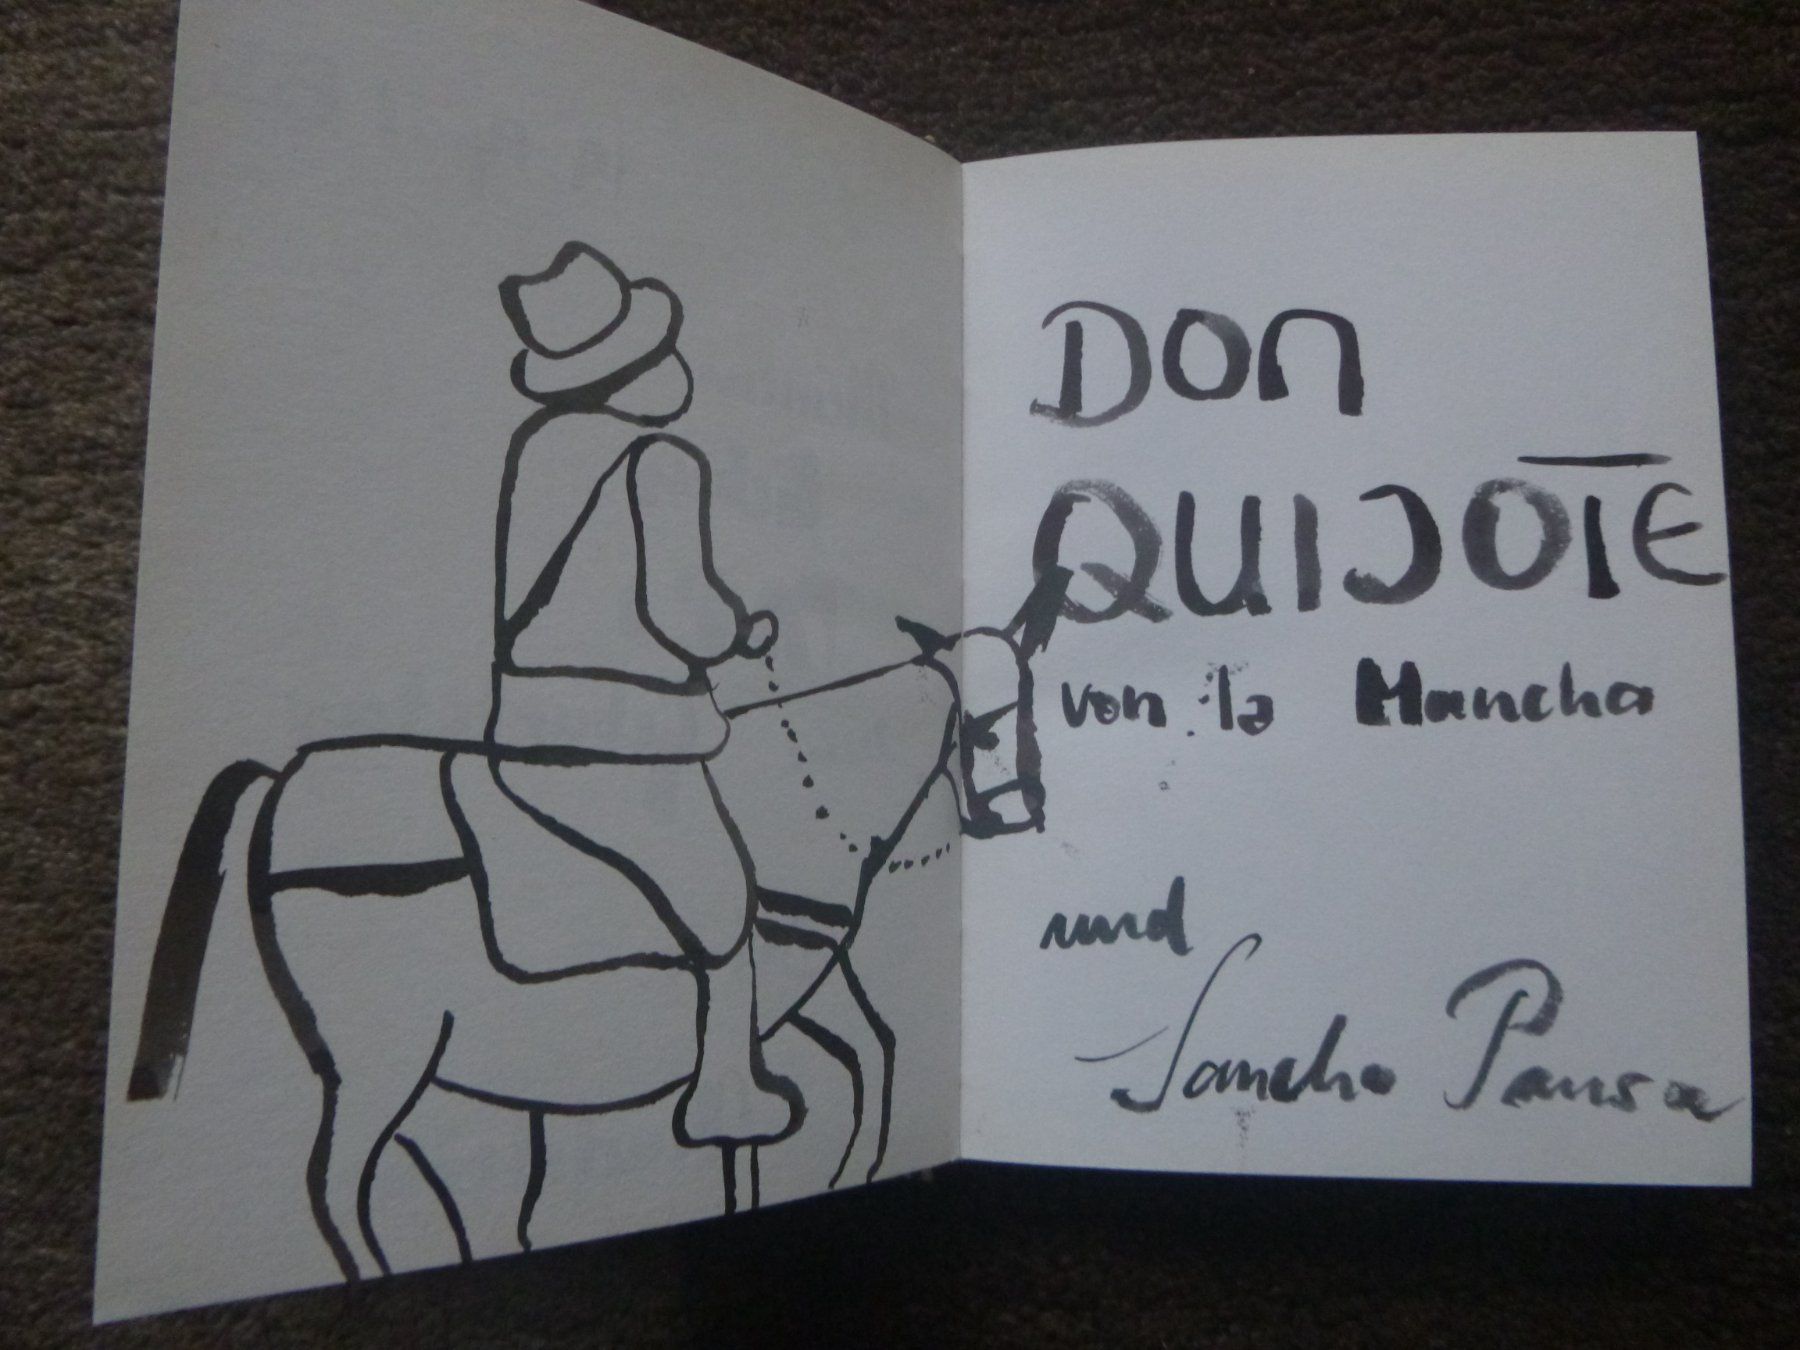 DON
QUIJOTE
von la Mancha
und
Sancho Pansa